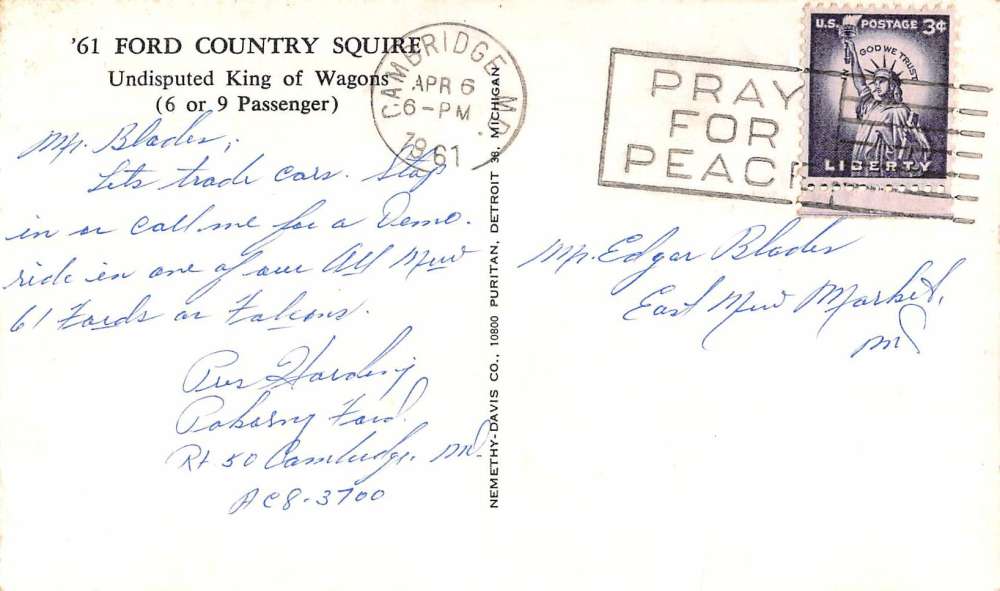 '61 FORD COUNTRY SQUIRE
Undisputed King of Wagons
(6 or 9 Passenger)
Mr. Blades,
Lets trade cars. Stop
in or call me for a Demo.
ride in one of our All New
61 Fords or Falcons.
Harding
Pokorny Ford.
Rt 50 Cambridge, Md.
AC8-3700
NEMETHY-DAVIS CO., 10800 PURITAN, DETROIT 38, MICHIGAN
CAMBRIDGE MD.
APR 6
6-PM
1961
PRAY
FOR
PEACE
U.S. POSTAGE 3¢
IN GOD WE TRUST
LIBERTY
Mr. Edgar Blades
East New Market,
Md